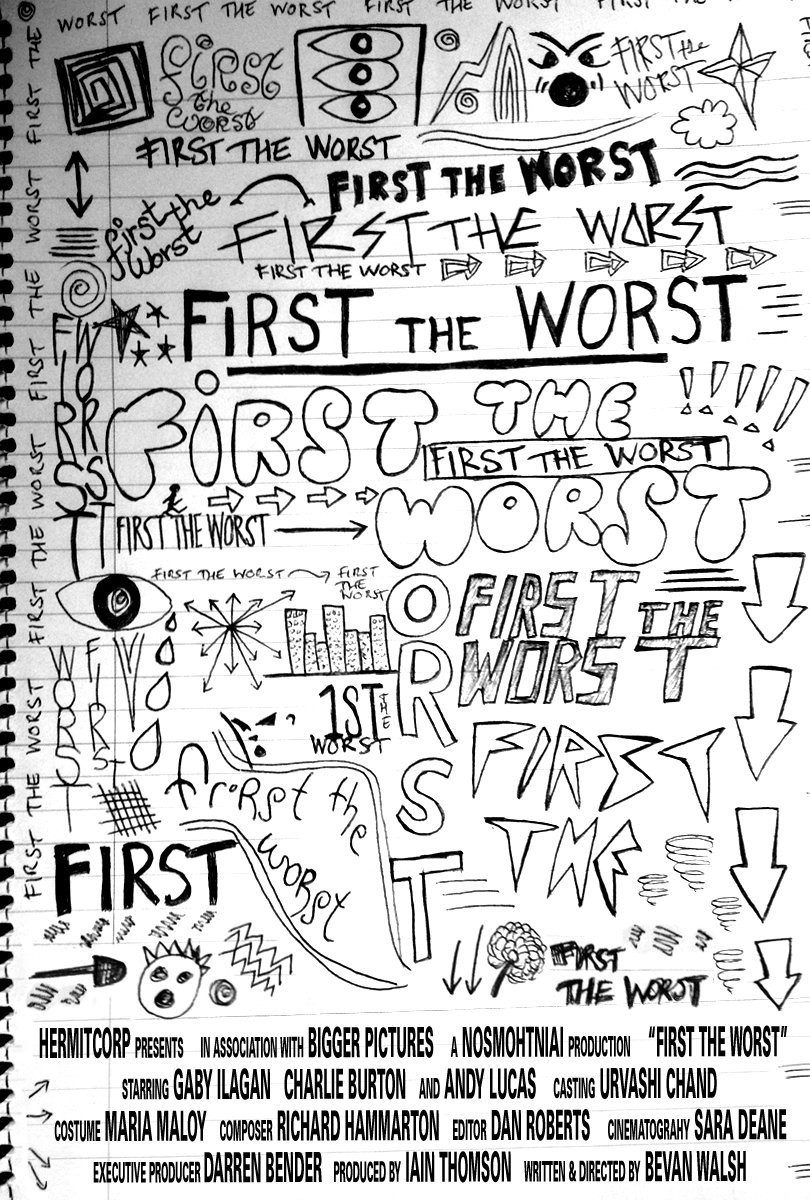 FIRST THE WORST FIRST THE WORST FIRST THE WORST FIRST THE
WORST FIRST THE WORST FIRST THE WORST FIRST THE WORST FIRST THE
First the Worst
FIRST the WORST
FIRST THE WORST
FIRST THE WORST
first the worst
FIRST THE WORST
FIRST THE WORST
FIRST THE WORST
FIRST
WORST
FIRST THE
FIRST THE WORST
WORST
FIRST THE WORST
FIRST THE WORST
FIRST THE WORST
ORST
FIRST THE
WORST
WORST
FIRST
1ST THE
WORST
FIRST
THE
first the
worst
FIRST
FIRST
THE WORST
HERMITCORP PRESENTS IN ASSOCIATION WITH BIGGER PICTURES A NOSMOHTNIAI PRODUCTION “FIRST THE WORST”
STARRING GABY ILAGAN CHARLIE BURTON AND ANDY LUCAS CASTING URVASHI CHAND
COSTUME MARIA MALOY COMPOSER RICHARD HAMMARTON EDITOR DAN ROBERTS CINEMATOGRAHY SARA DEANE
EXECUTIVE PRODUCER DARREN BENDER PRODUCED BY IAIN THOMSON WRITTEN & DIRECTED BY BEVAN WALSH